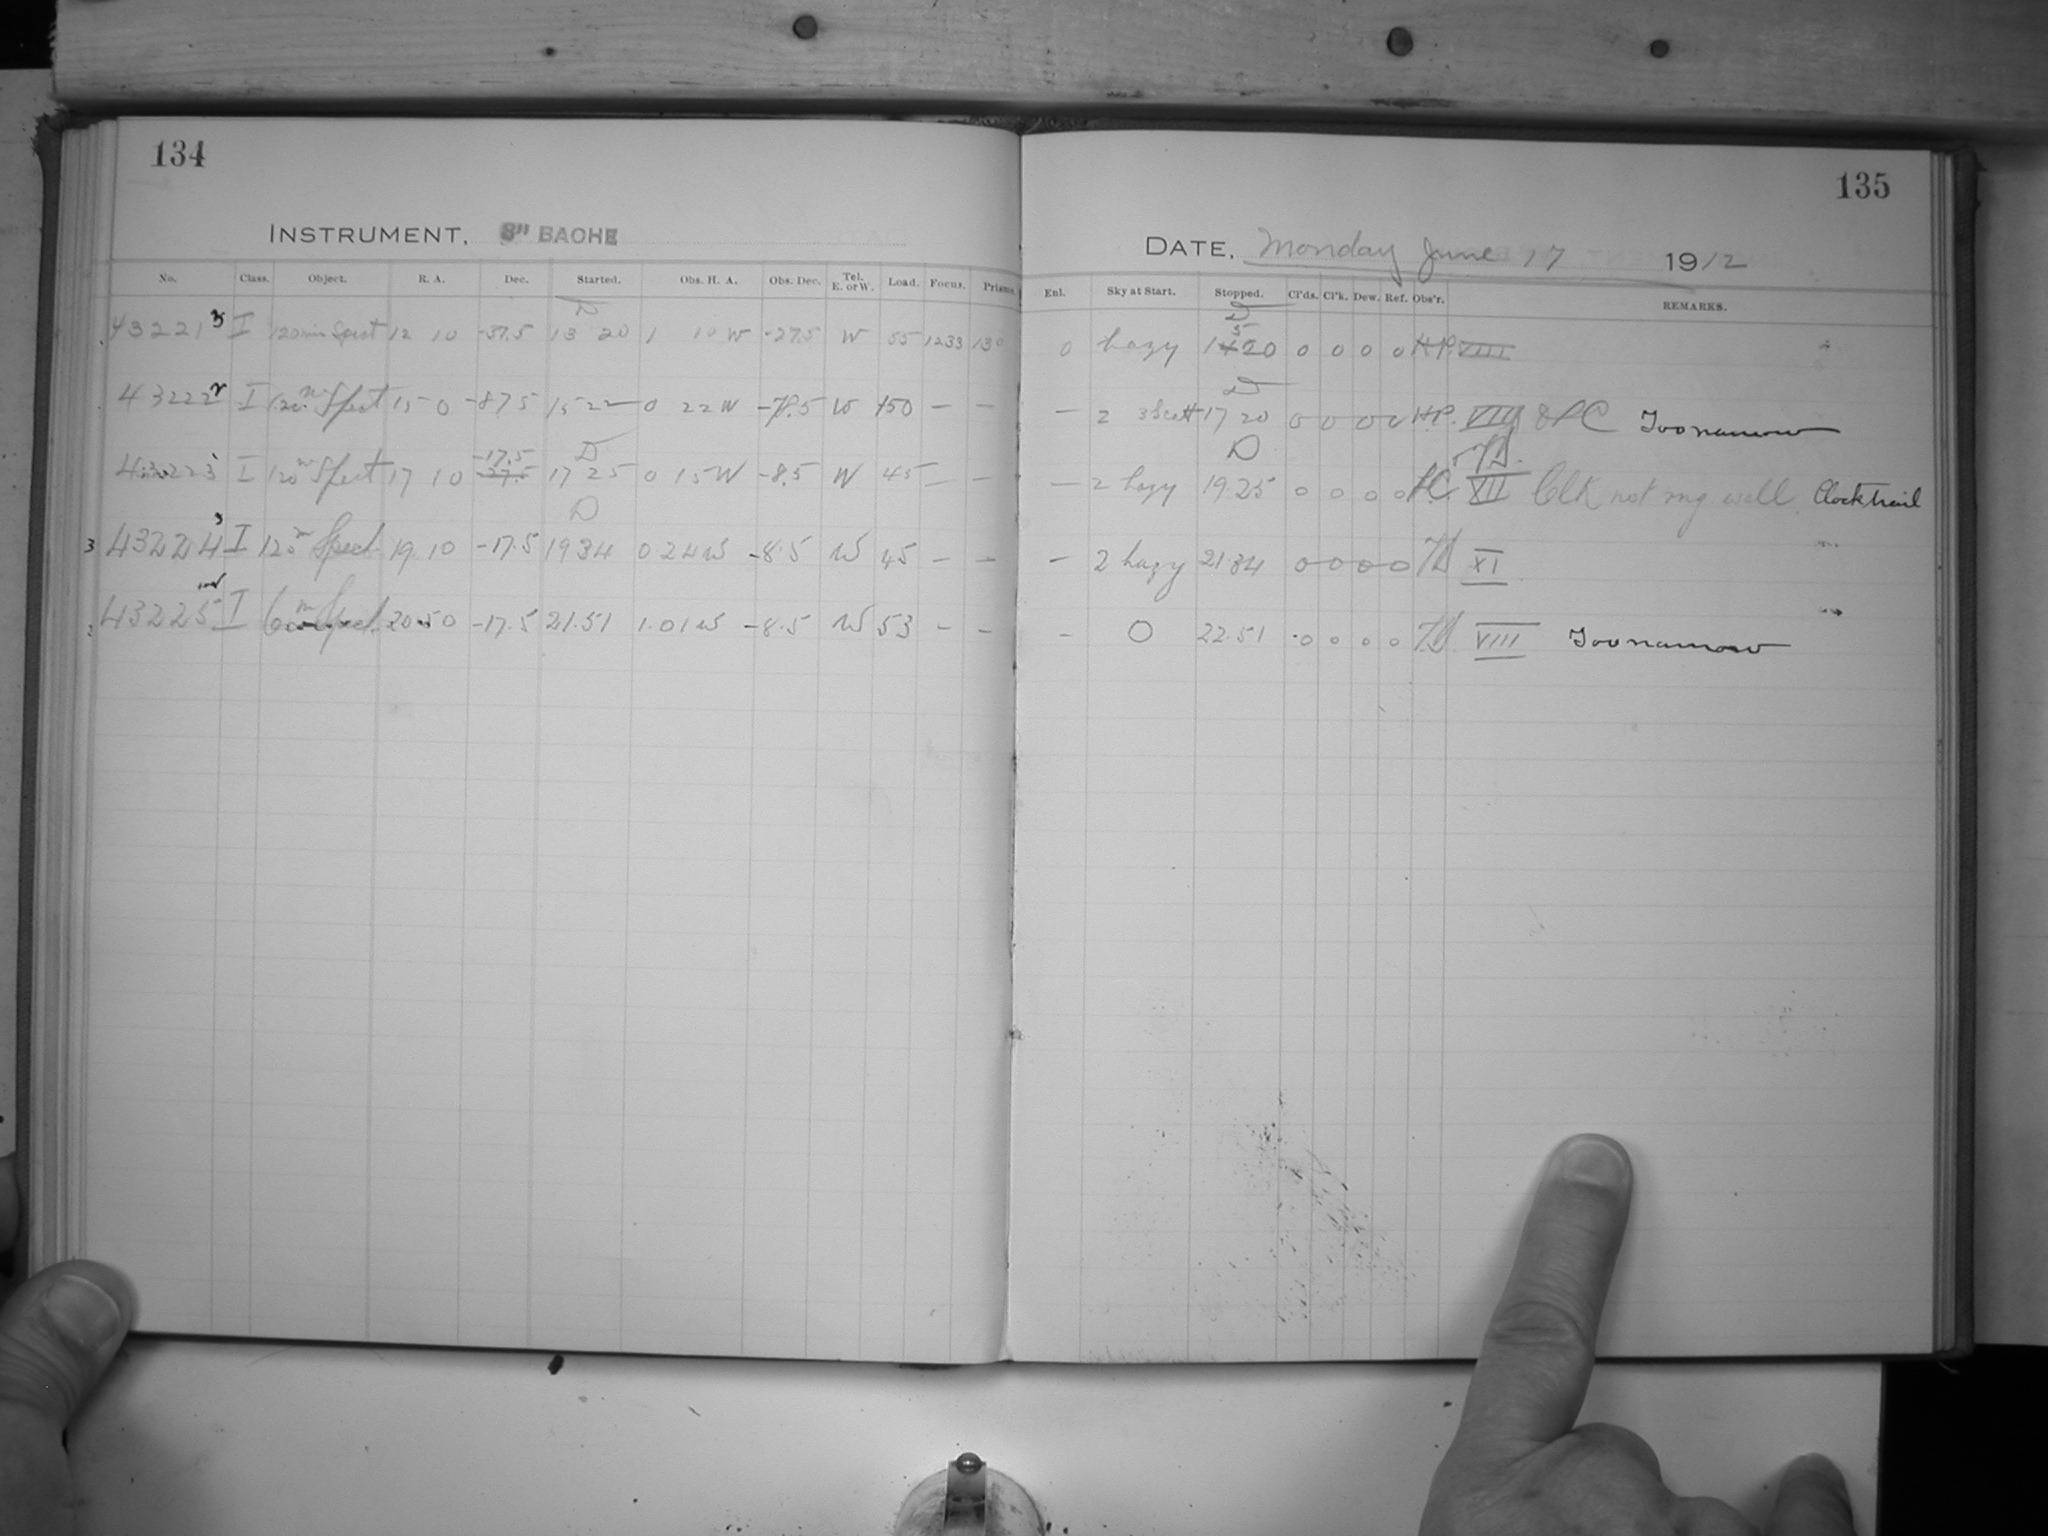 134
INSTRUMENT, 8" BACHE
No. Class. Object. R. A. Dec. Started. Obs. H. A. Obs. Dec. Tel. E. or W. Load. Focus. Prisms.
D
43221 3 I 120 min Spect 12 10 -37.5 13 20 1 10 W -27.5 W 55 1233 130
43222 I 120 m Spect 15 0 -87 5 15 22 0 22 W -78.5 W 150 — —
-17.5 D
43223 I 120 m Spect 17 10 -27.5 17 25 0 15 W -8.5 W 45 — —
D
3 43224 3 I 120 m Spect. 19 10 -17.5 19 34 0 24 W -8.5 W 45 — —
43225 I 60 m Spect. 20.50 -17.5 21.51 1.01 W -8.5 W 53 - -
135
DATE, Monday June 17 1912
Enl. Sky at Start. Stopped. Cl'ds. Cl'k. Dew. Ref. Obs'r. REMARKS.
D
5
0 hazy 1420 0 0 0 0 H.P. VIII
D
— 2 17 20 0 0 0 0 H.P. VIII & LC Too narrow
D
— 2 hazy 19.25 0 0 0 0 LC XII Clk not rng well. Clock trail
— 2 hazy 21.34 0 0 0 0 XI
- 0 22.51 0 0 0 0 VIII Too narrow